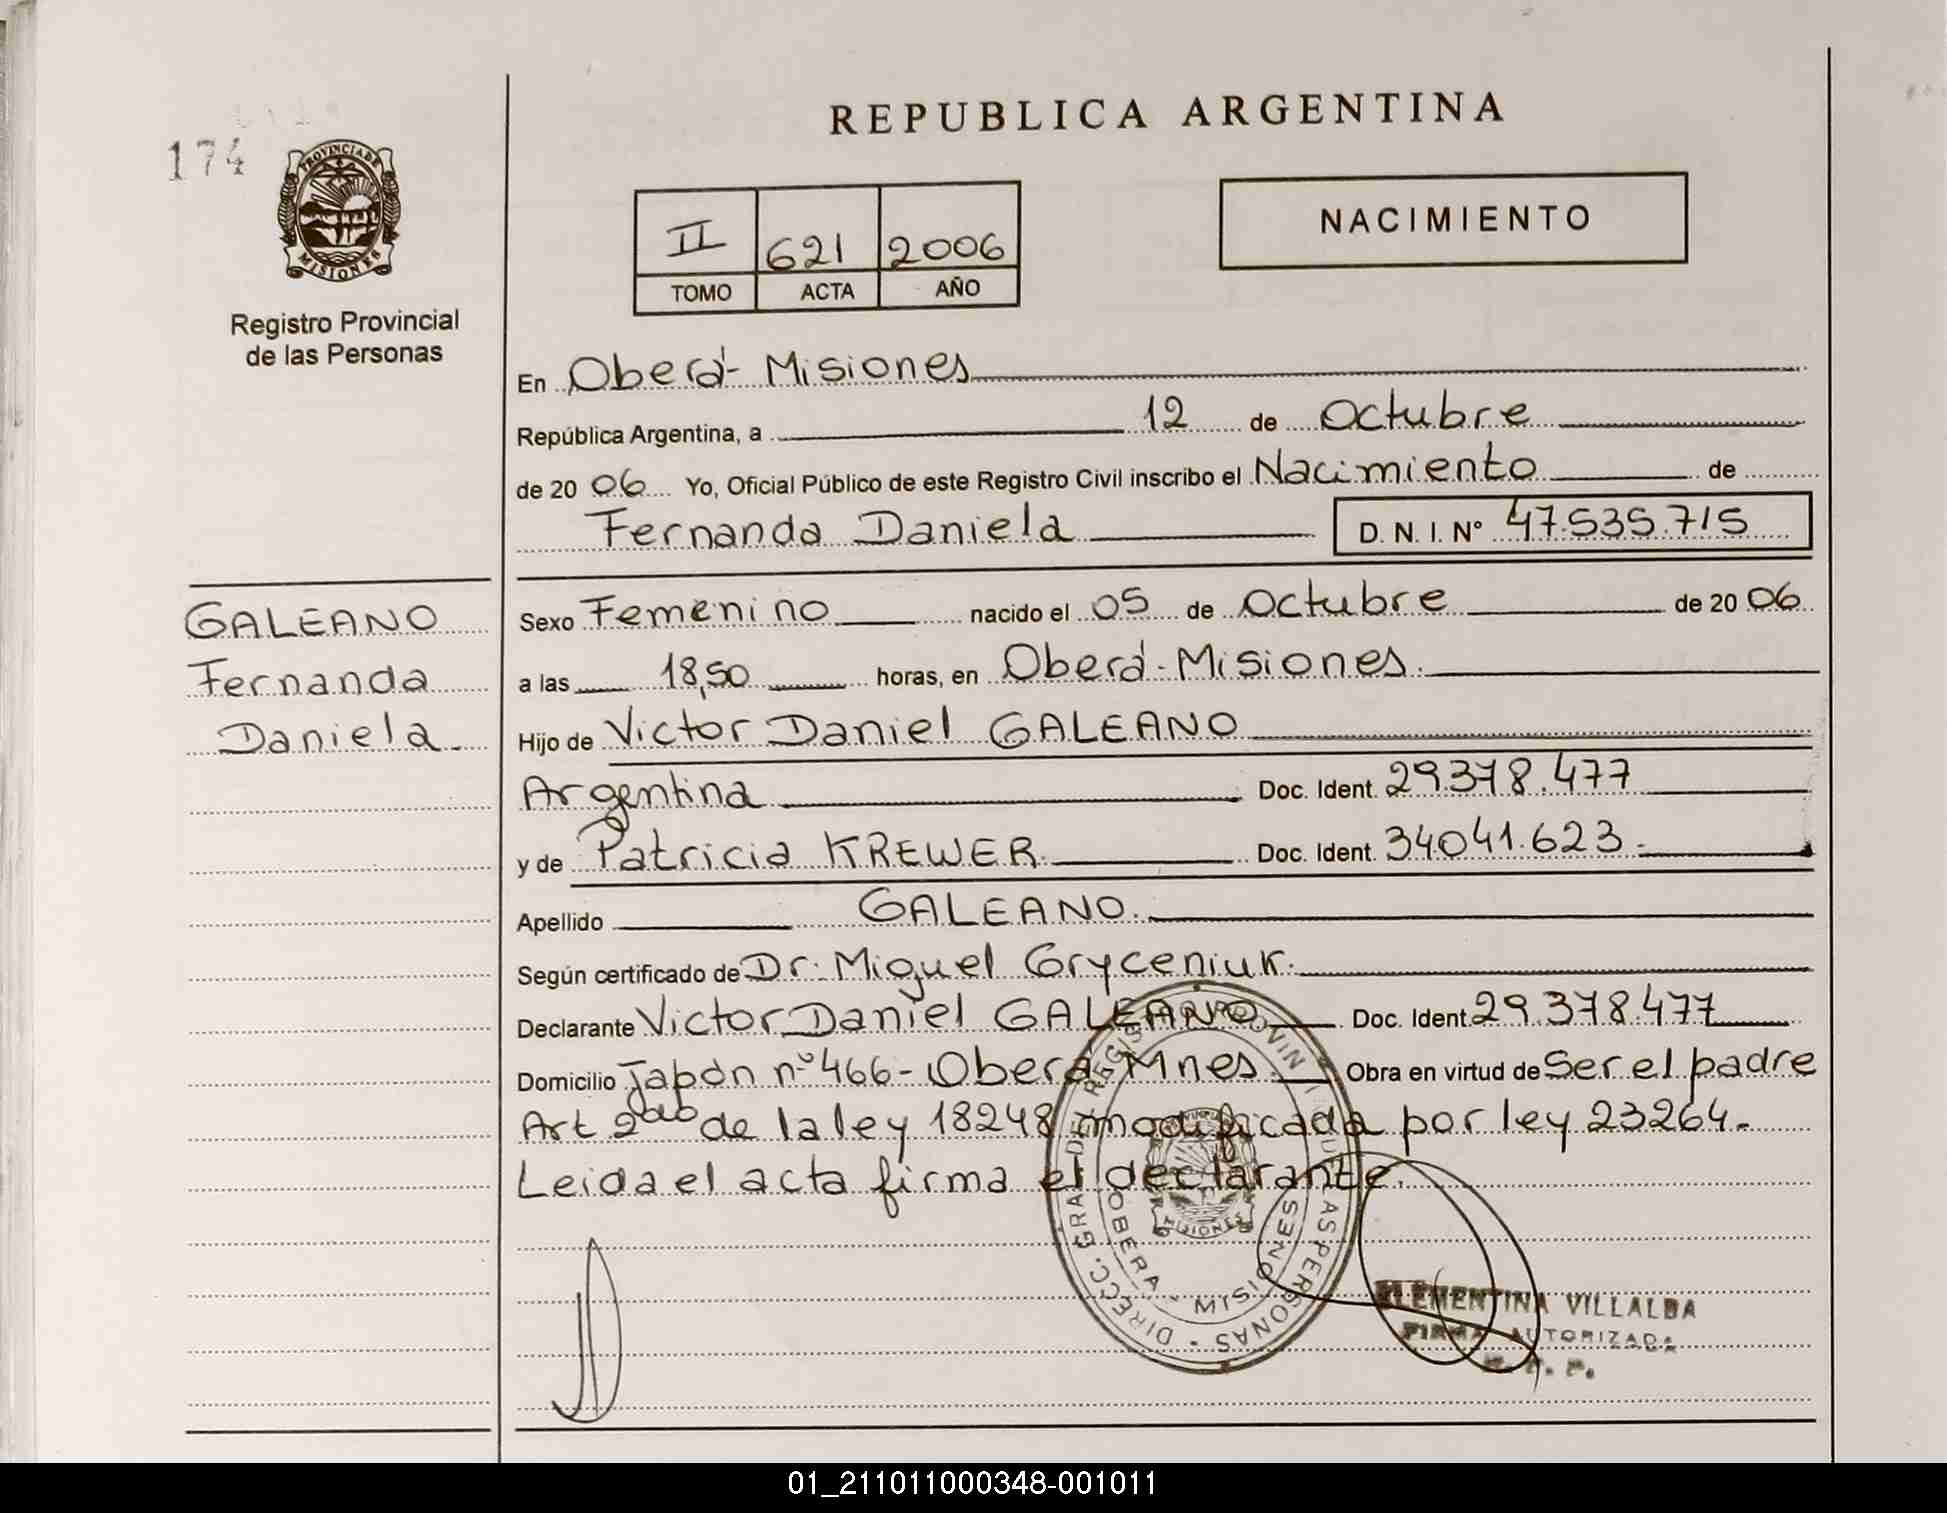 REPUBLICA ARGENTINA
174
PROVINCIA DE
MISIONES
Registro Provincial
de las Personas
II 621 2006
TOMO ACTA AÑO
NACIMIENTO
En Oberá- Misiones
República Argentina, a 12 de Octubre
de 20 06 Yo, Oficial Público de este Registro Civil inscribo el Nacimiento de
Fernanda Daniela D. N. I. N° 47.535.715
GALEANO
Fernanda
Daniela
Sexo Femenino nacido el 05 de Octubre de 20 06
a las 18,50 horas, en Oberá - Misiones.
Hijo de Victor Daniel GALEANO
Argentina Doc. Ident. 29.378.477
y de Patricia KREWER. Doc. Ident. 34041.623.-
Apellido GALEANO.
Según certificado de Dr. Miguel Gryceniuk.
Declarante Victor Daniel GALEANO Doc. Ident. 29.378.477
Domicilio Japón nº 466- Oberá Mnes. Obra en virtud de Ser el padre
Art 2do de la ley 18248 modificada por ley 23264.-
Leida el acta firma el declarante.
DIRECC. GRAL. DEL REGISTRO PROVINCIAL DE LAS PERSONAS
OBERA - MISIONES
MISIONES
CLEMENTINA VILLALBA
FIRMA AUTORIZADA
01_211011000348-001011